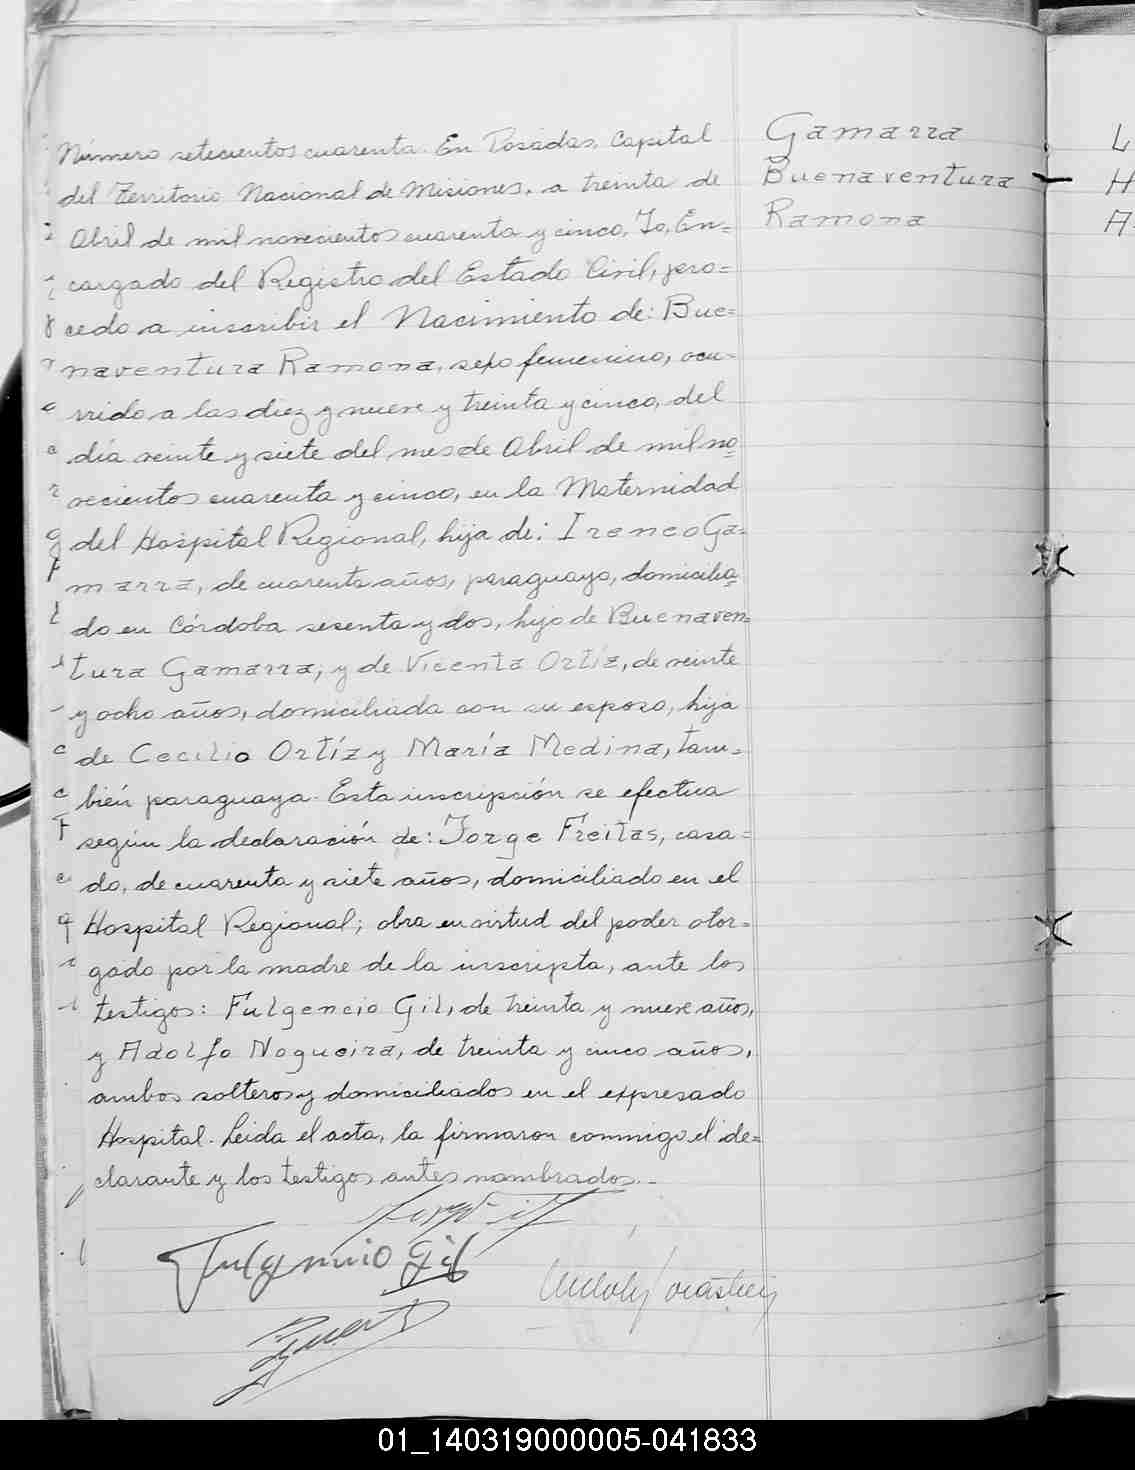 Gamarra
Buenaventura
Ramona
Número setecientos cuarenta. En Posadas, Capital
del Territorio Nacional de Misiones, a treinta de
Abril de mil novecientos cuarenta y cinco, Yo, En=
cargado del Registro del Estado Civil, pro=
cedo a inscribir el Nacimiento de: Bue=
naventura Ramona, sexo femenino, ocu-
rrido a las diez y nueve y treinta y cinco, del
día veinte y siete del mes de Abril de mil no
vecientos cuarenta y cinco, en la Maternidad
del Hospital Regional, hija de: Ireneo Ga-
marra, de cuarenta años, paraguayo, domicilia
do en Córdoba sesenta y dos, hijo de Buenaven
tura Gamarra, y de Vicenta Ortíz, de veinte
y ocho años, domiciliada con su esposo, hija
de Cecilio Ortíz y María Medina, tam-
bién paraguaya. Esta inscripción se efectua
según la declaración de: Jorge Freitas, casa=
do, de cuarenta y siete años, domiciliado en el
Hospital Regional; obra en virtud del poder otor=
gado por la madre de la inscripta, ante los
testigos: Fulgencio Gil, de treinta y nueve años,
y Adolfo Nogueira, de treinta y cinco años,
ambos solteros y domiciliados en el expresado
Hospital. Leida el acta, la firmaron conmigo el de=
clarante y los testigos antes nombrados.-
Fulgencio Gil
L
H
A
01_140319000005-041833